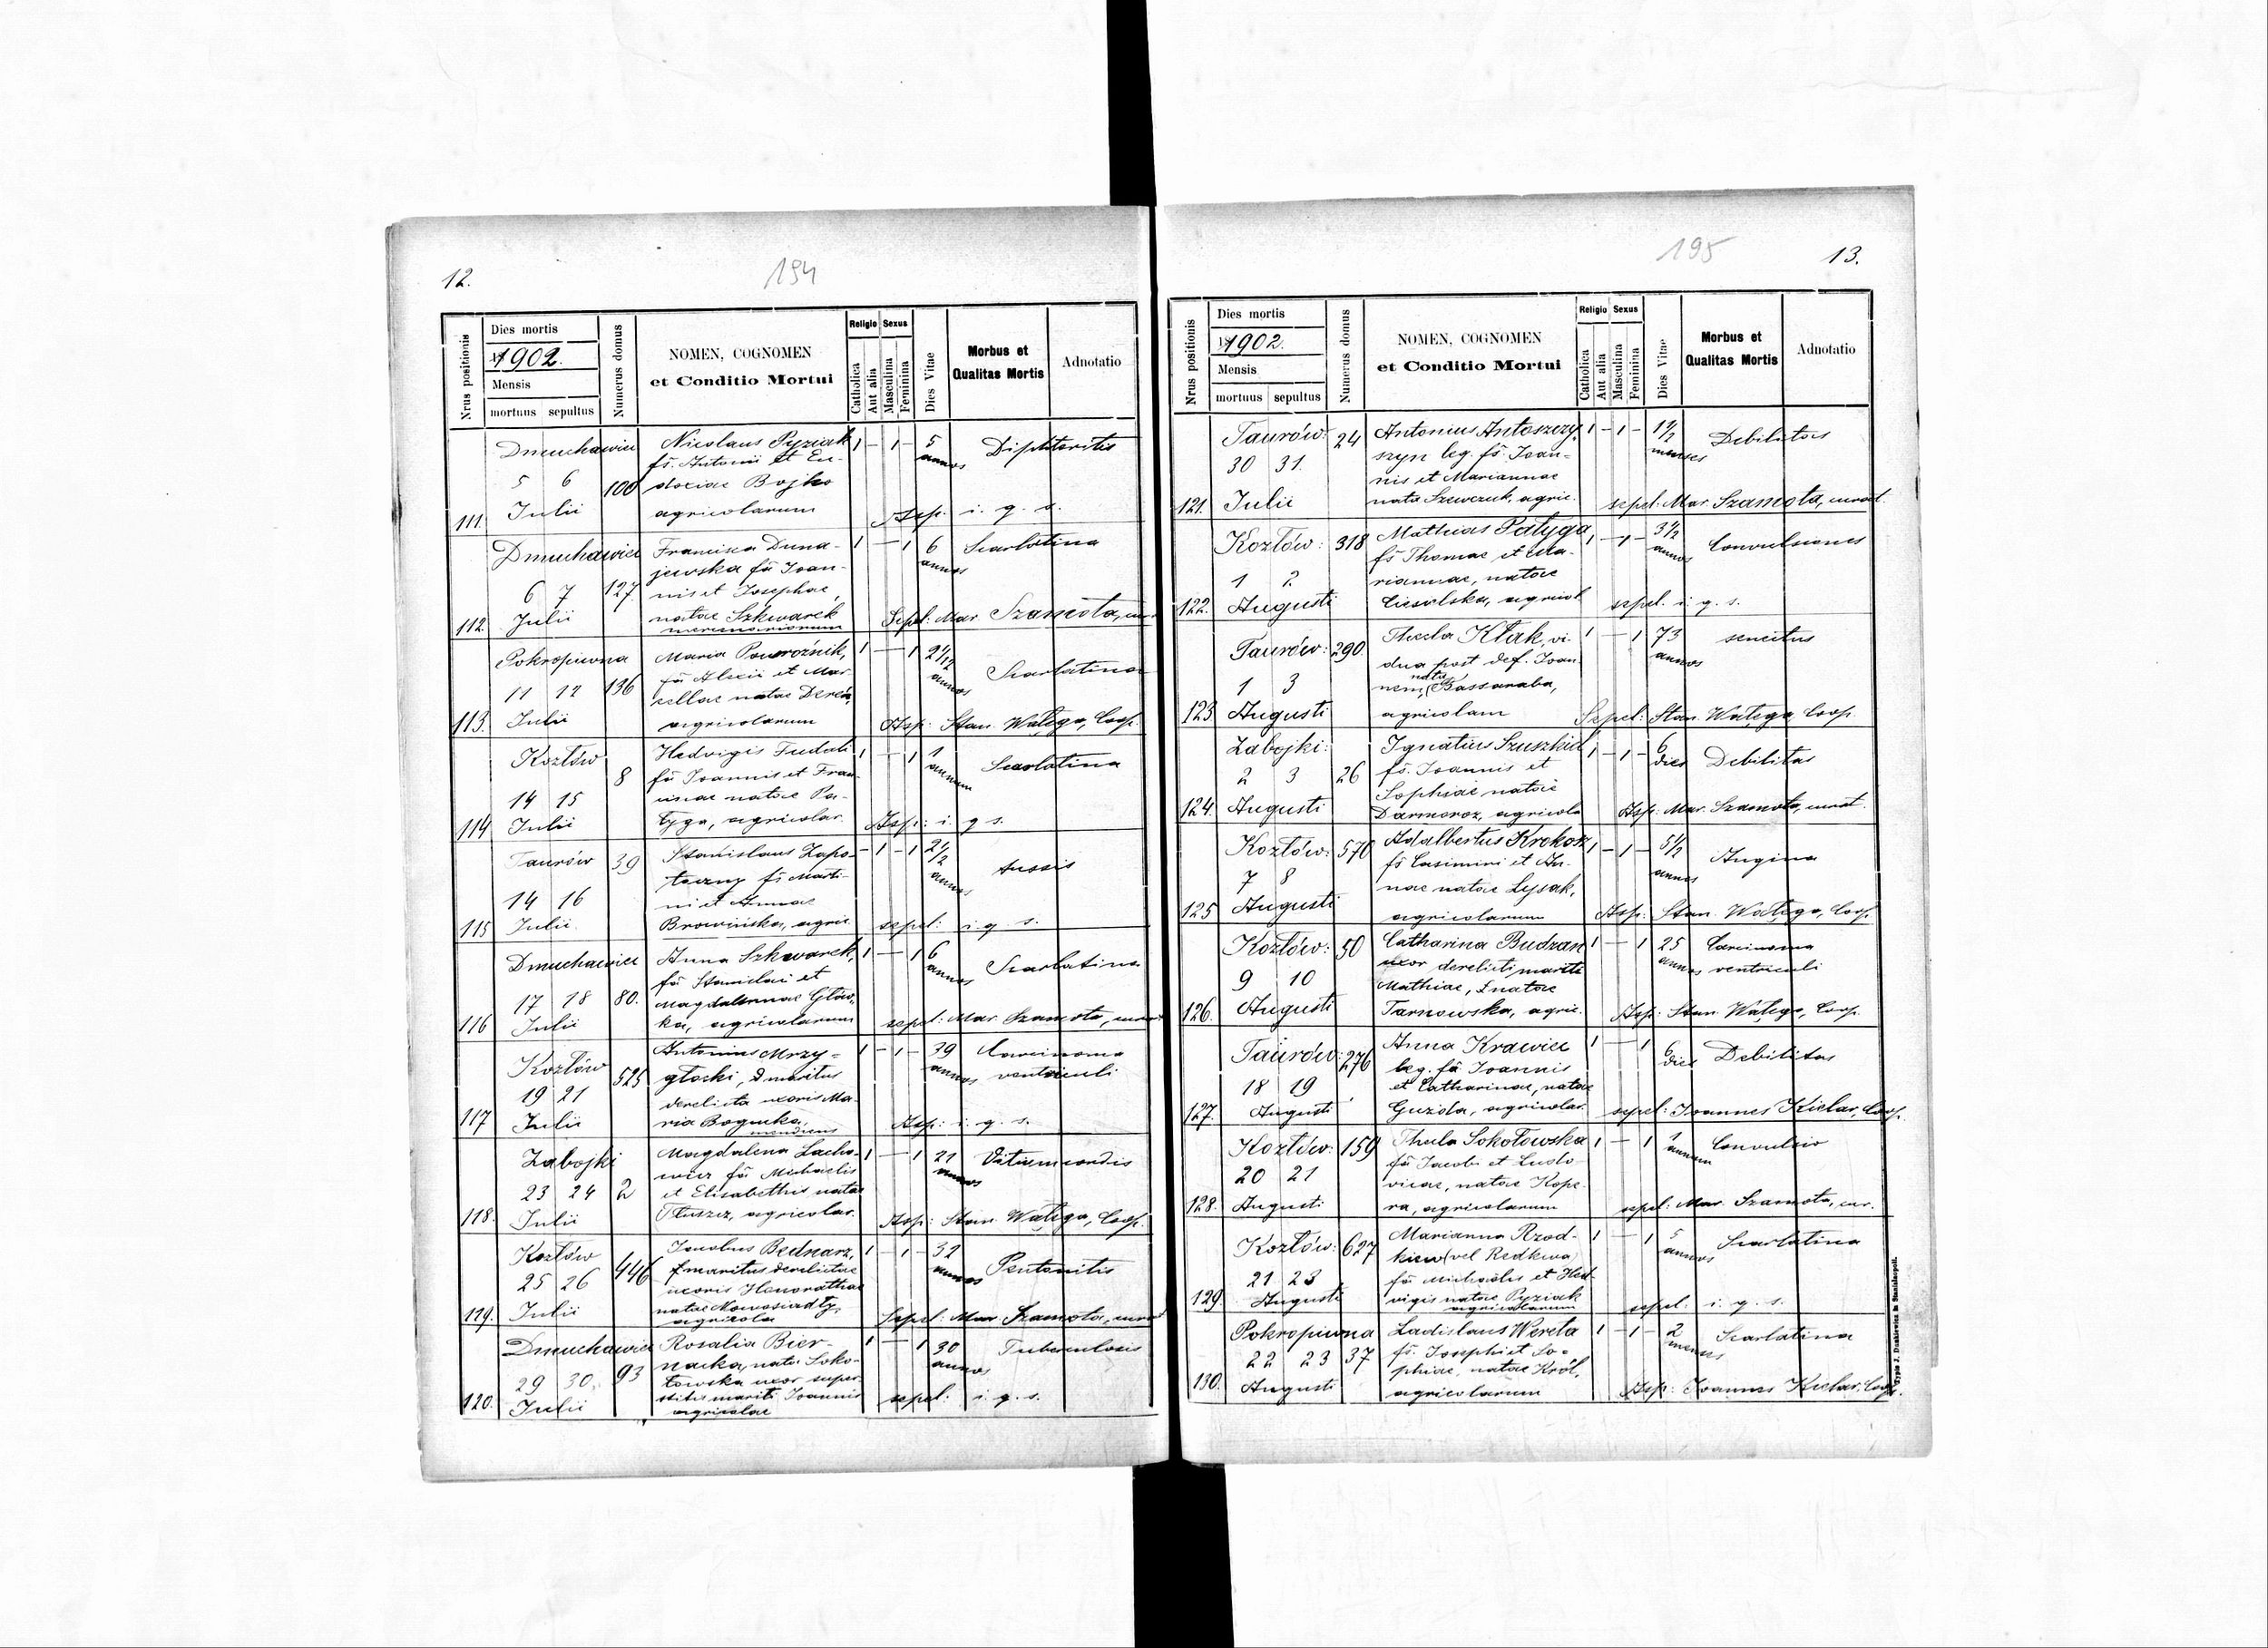 12.
194
Nrus positionis
Dies mortis
1902.
Mensis
mortuus sepultus
Numerus domus
NOMEN, COGNOMEN
et Conditio Mortui
Religio
Catholica
Aut alia
Sexus
Masculina
Feminina
Dies Vitae
Morbus et
Qualitas Mortis
Adnotatio
Dmuchawiec Nicolaus Pyziak 1 - 1 - 5
fs. Antonii et Eu- annos Diphteritis
5 6 100 dociae Bojko
111. Julii agricolarum Assp. i. q. s.
Dmuchawiec Francisca Duna- 1 - 1 6 Scarlatina
jewska fa Joan- annos
6 7 127 nis et Josephae,
112. Julii natae Szkwarek Sepel: Mar Szamota,
mercenariorum
Pokropiwna Maria Powroźnik, 1 - 1
fa Alexii et Mar annos Scarlatina
11 12 136 cellae natae Dereń,
113. Julii agricolarum Assp: Stan. Wałęga, Coop.
Kozłów Hedvigis Fudali 1 - 1 1
8 fa Joannis et Fran annum Scarlatina
14 15 ciscae natae Pa-
114 Julii tyga, agricolar. Assp: i. q. s.
Taurów 39 Stanislaus Zapo- - 1 - 1 2 1/2
toczny fs Marti- annos tussis
14 16 ni et Annae
115 Julii. Browińska, agric sepel: i. q. s.
Dmuchawiec Anna Szkwarek, 1 - 1 6
fa Stanislai et annos Scarlatina
17 18 80. Magdalenae Głów,
116 Julii ka, agricolarum sepel: Mar Szamota,
Kozłów Antonius Mrzy- 1 - 1 - 39 Carcinoma
525 głocki, maritus annos ventriculi
19 21 derelicta uxoris Ma-
117 Julii ria Bogucka, Assp: i. q. s.
mendicus
Zabojki Magdalena Lacho- 1 - 1 21 Vitium cordis
wicz fa Michaelis annos
23 24 2 et Elisabethis natae
118. Julii Tłuszcz, agricolar. Assp: Stan. Wałęga, Coop.
Kozłów Jacobus Bednarz, 1 - 1 - 32
446 maritus derelictae annos Peritonitis
25 26 uxoris Honorathae
119. Julii natae Nowosiadły, Sepel: Mar Szamota,
agricola
Dmuchawiec Rosalia Bier- 1 - 1 30 Tuberculosis
93 nacka, nata Soko- annos
29 30. łowska uxor super
120. Julii stitis mariti Joannis sepel: i. q. s.
agricolae
195
13.
Nrus positionis
Dies mortis
1902.
Mensis
mortuus sepultus
Numerus domus
NOMEN, COGNOMEN
et Conditio Mortui
Religio
Catholica
Aut alia
Sexus
Masculina
Feminina
Dies Vitae
Morbus et
Qualitas Mortis
Adnotatio
Taurów: 24 Antonius Antoszczy- 1 - 1 - 1 1/2 Debilitas
szyn leg. fs. Joan- menses
30 31. nis et Mariannae
121. Julii nata Szewczuk, agric. sepel: Mar. Szamota, curat.
Kozłów: 318 Mathias Patyga 1 - 1 - 3 1/2 Convulsiones
fs Thomae et Ma- annos
1 2 riannae, natae
122. Augusti Ciesolska, agricol sepel. i. q. s.
Taurów: 290. Thecla Kłak, vi- 1 - 1 73 senectus
dua post def. Joan annos
1 3 nem, nata Bassaraba,
123 Augusti agricolam Sepel: Stan. Wałęga, Coop
Zabojki: Ignatius Szuszkiel 1 - 1 - 6 Debilitas
2 3 26 fs. Joannis et dies
Sophiae natae
124. Augusti Darmoroz, agricola Assp: Mar. Szamota, curat.
Kozłów: 570 Adalbertus Krokosz 1 - 1 - 5 1/2 Angina
fs Casimiri et An- annos
7 8 nae natae Lysak,
125 Augusti agricolarum Assp: Stan. Wałęga, Coop.
Kozłów: 50 Catharina Budzan 1 - 1 25 Carcinoma
uxor derelicti mariti annos ventriculi
9 10 Mathiae, natae
126. Augusti Tarnowska, agric. Assp: Stan. Wałęga, Coop.
Taurów: 276 Anna Krawiec 1 - 1 6 Debilitas
leg. fa Joannis dies
18 19 et Catharinae, natae
127. Augusti Guzda, agricolar. sepel: Joannes Kielar, Coop.
Kozłów: 159 Thecla Sokołowska 1 - 1 1 Convulsio
20 21 fa Jacobi et Ludo- annum
vicae, natae Kope-
128. Augusti ra, agricolarum sepel: Mar. Szamota, cur.
Kozłów: 627 Marianna Rzod- 1 - 1 5 Scarlatina
kiew (vel Redkwa) annos
21 23 fa Michaelis et Hed-
129. Augusti vigis natae Pyziak sepel: i. q. s.
agricolarum
Pokropiwna Ladislaus Wereta 1 - 1 - 2 Scarlatina
22 23 37 fs. Josephi et So- menses
phiae, natae Król,
130. Augusti agricolarum Assp: Joannes Kielar, Coop.
Typis J. Dankiewicz in Stanislaopoli.